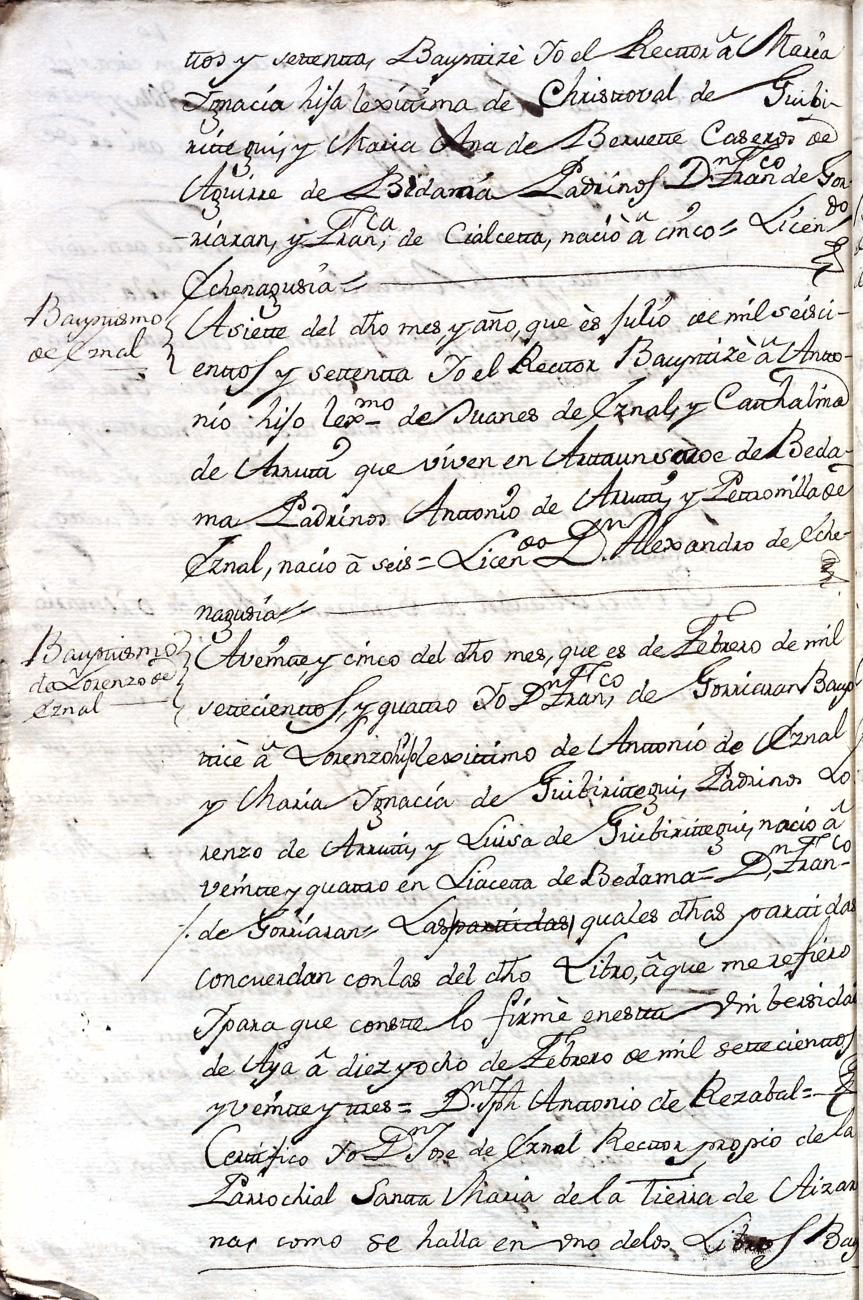 ttos y settentta, Bauptizè Yo el Recttor â Marìa
Ygnacìa hija lexíttima de Christtoval de Guibi-
rittegui, y Maria Ana de Beruette Caseros de
Aguirre de Bedama Padrinos Dn. Franco de Gor-
riaran, y Franca, de Cialcetta, naciò â cinco = Licendo
Echenagusia =
Bauptismo
de Eznal
A siette del dho mes, y año, que ès Julio de mil seisci-
enttos y settentta Yo el Recttor Bauptizè â Antto-
nio hijo lexmo de Juanes de Eznal, y Catthalina
de Arrutti, que viven en Arttaunsoroe de Beda-
ma Padrinos Anttonio de Arrutti, y Pettronilla de
Eznal, nacio â seis = Licendo Dn. Alexandro de Eche-
nagusia =
Bauptismo
de Lorenzo de
Eznal
A veintte, y cinco del dho mes, que es de Febrero de mil
settecienttos, y quattro Yo Dn Franco, de Gorriaran Baup-
ticè â Lorenzo hijo lexittimo de Anttonio de Eznal
y Marìa Ygnacìa de Guibirittegui, Padrinos Lo-
renzo de Arrutti, y Luisa de Guibirittegui, naciò â
veintte y quattro en Liacetta de Bedama = Dn. Franco
de Gorriaran = Las parttidas quales dhas parttidas
concuerdan con las del dho Libro, â que me refiero
Y para que constte lo firmè en estta Vnibersidad
de Aya â diez y ocho de Febrero de mil settecienttos
y veintte y ttres = Dn. Jph Anttonio de Rezabal =
Certtifico Yo Dn. Joze de Eznal Recttor propio de la
Parrochial Santta Maria de la Tierra de Aizar
na, como se halla en vno de los Libros Bau